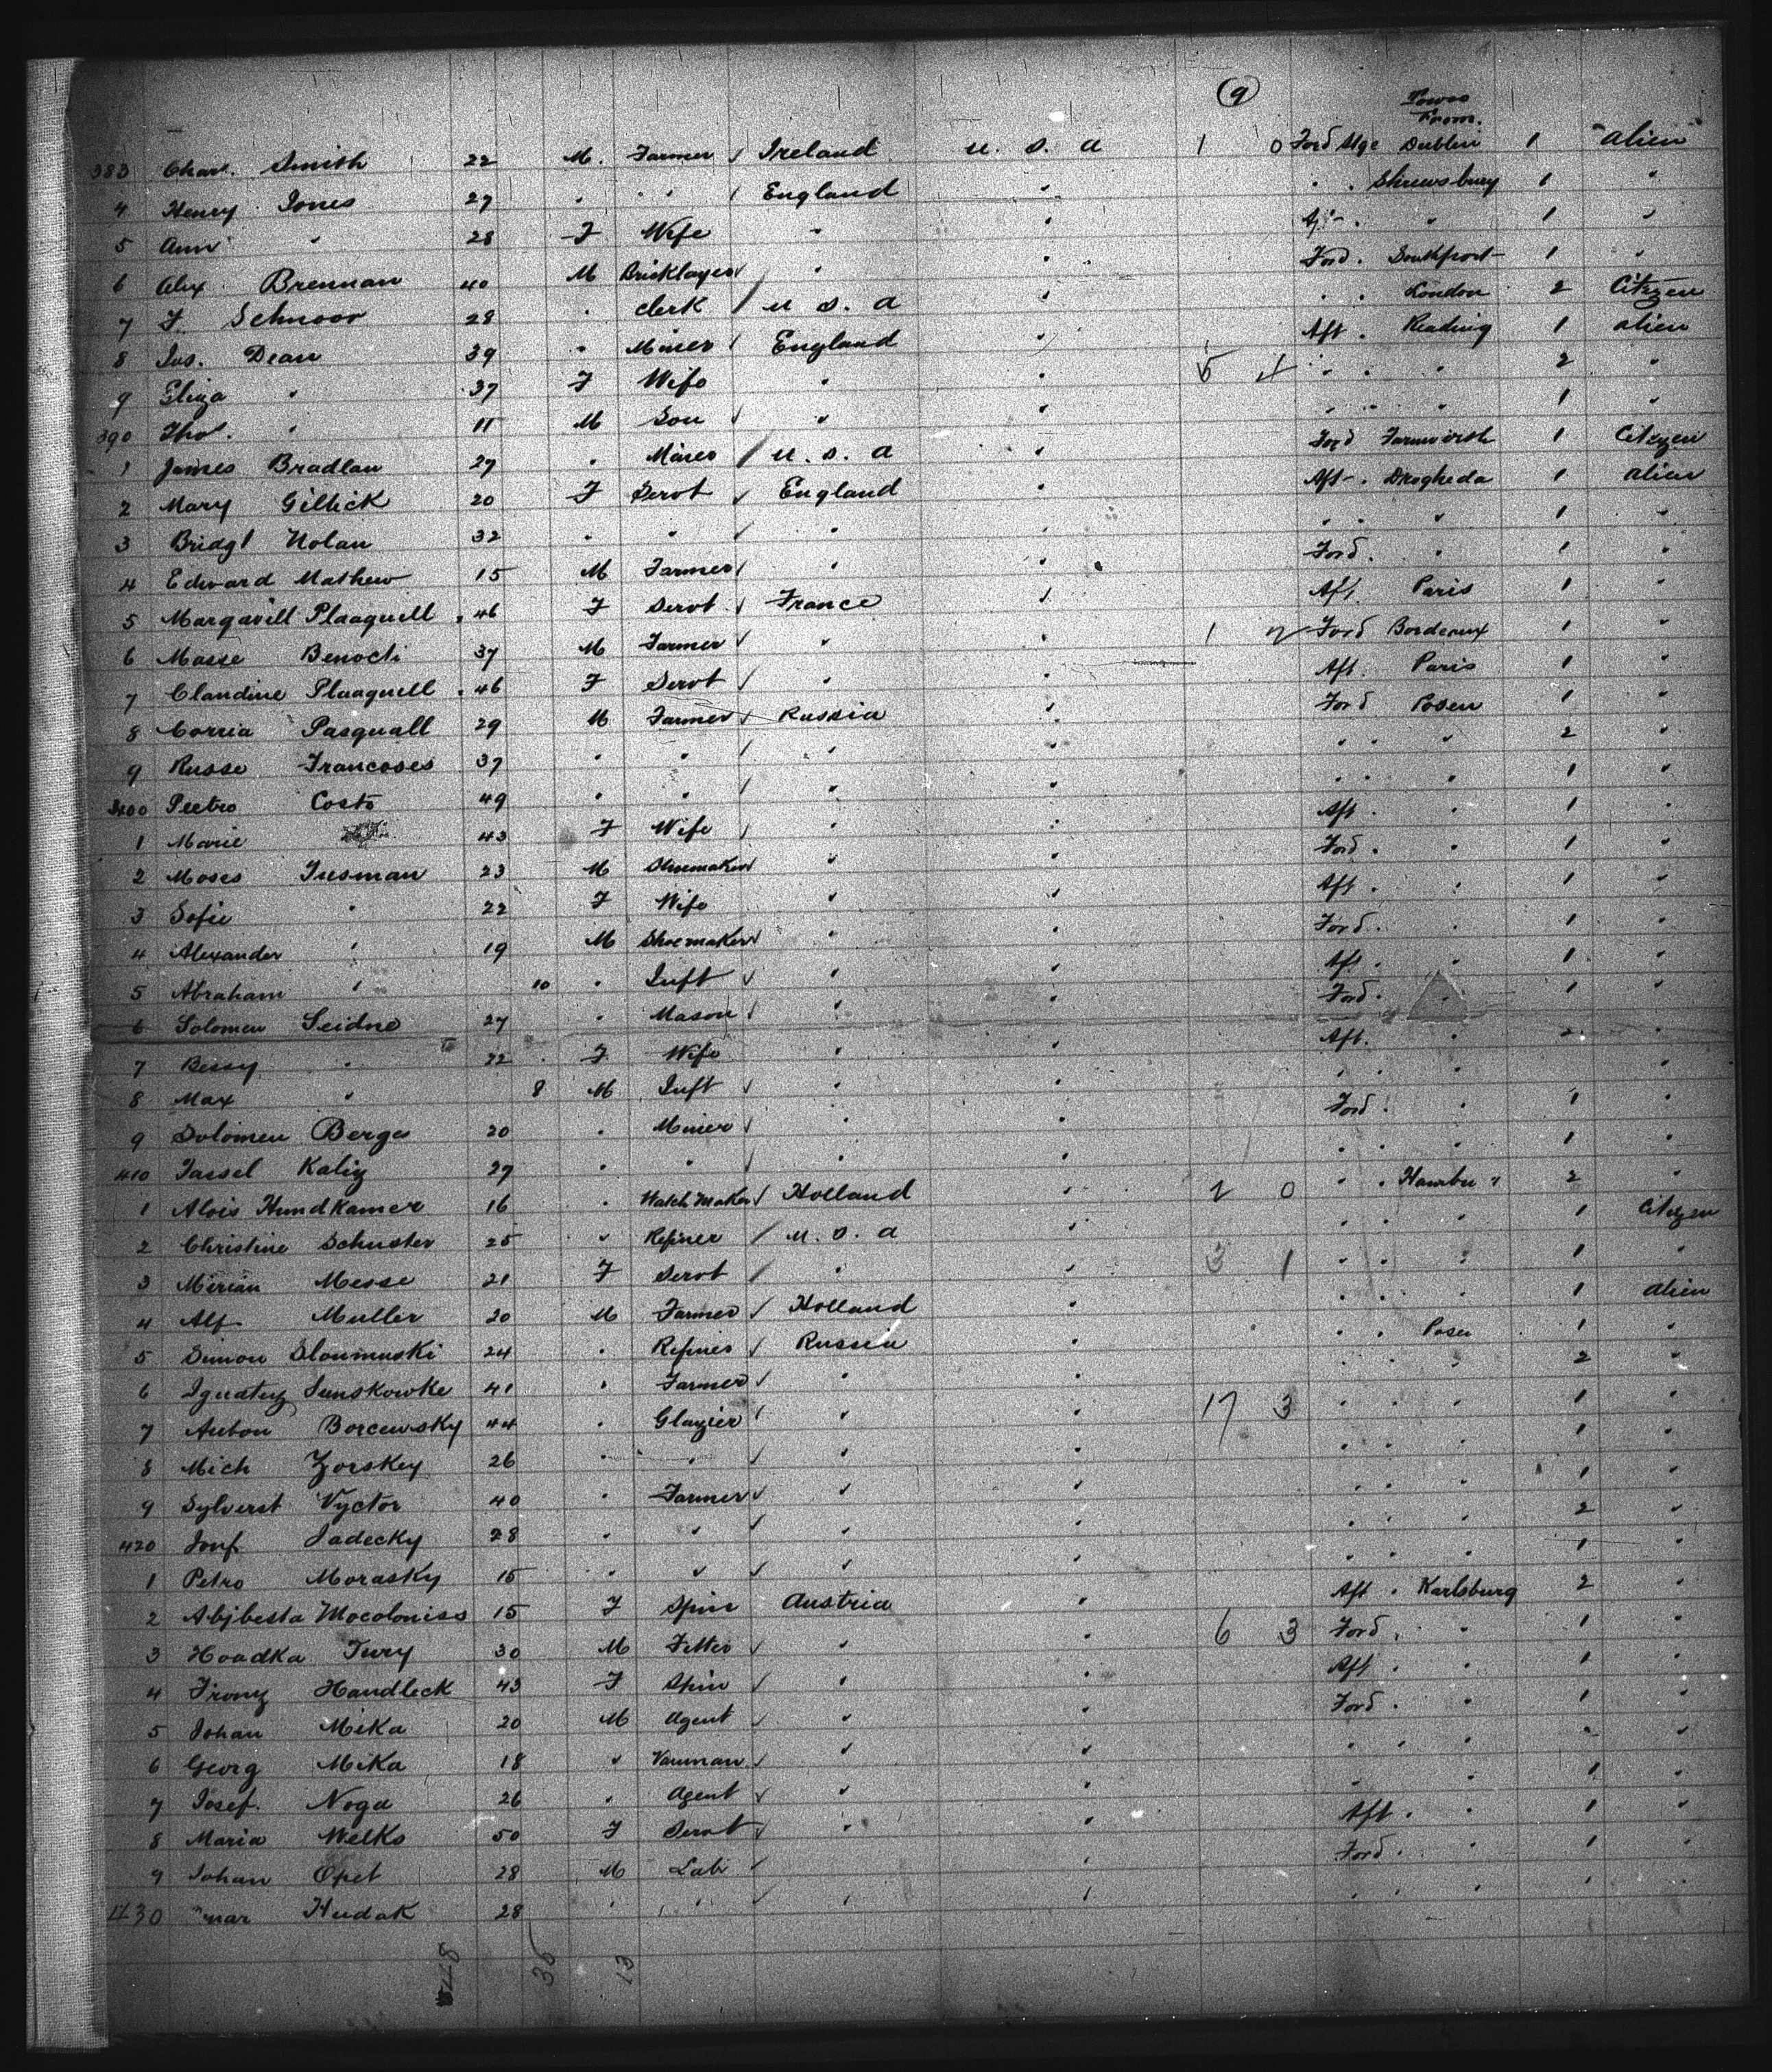 9
Towns
From.
383 Chas. Smith 22 M. Farmer Ireland U. S. A 1 0 Ford Stge Dublin 1 Alien
4 Henry Jones 27 " " England " " " Shrewsbury 1 "
5 Ann " 28 F Wife " " Aft " " 1 "
6 Alex Brennan 40 M Bricklayer " " Ford " Southport 1 "
7 F. Schnoor 28 " Clerk U. S. A " " " London 2 Citizen
8 Jas. Dean 39 " Miner England " Aft " Reading 1 Alien
9 Eliza " 37 F Wife " " 5 4 " " " 2 "
390 Thos. " 11 M Son " " " " " 1 "
1 James Bradlau 27 " Miner U. S. A " Ford Farnworth 1 Citizen
2 Mary Gillick 20 F Servt England " Aft " Drogheda 1 Alien
3 Bridgt Nolan 32 " " " " " " " 1 "
4 Edward Mathew 15 M Farmer " " Ford " " 1 "
5 Margavill Plaaquell 46 F Servt France " Aft. Paris 1 "
6 Masse Benocti 37 M Farmer " " 1 2 Ford Bordeaux 1 "
7 Claudine Plaaquell 46 F Servt " " Aft. Paris 1 "
8 Corria Pasquall 29 M Farmer Russia " Ford Posen 1 "
9 Russe Francoses 37 " " " " " " " 2 "
400 Peetro Costo 49 " " " " " " " 1 "
1 Marie 43 F Wife " " Aft " " 1 "
2 Moses Jusman 23 M Shoemaker " " Ford " " 1 "
3 Sofie " 22 F Wife " " Aft " " 1 "
4 Alexander " 19 M Shoemaker " " Ford " " 1 "
5 Abraham " 10 " Inft " " Aft " " 1 "
6 Solomen Seidne 27 " Mason " " Ford " " 1 "
7 Bessy " 22 F Wife " " Aft. " 2 "
8 Max " 8 M Inft " " " " " "
9 Solomen Berge 20 " Miner " " Ford " " 1 "
410 Jassel Kaliz 27 " " " " " " " 1 "
1 Alois Hundkamer 16 " Watch Maker Holland " 2 0 " " Hambu 2 "
2 Christine Schuster 25 " Refiner U. S. A " " " " 1 Citizen
3 Mirian Messe 21 F Servt " " 3 1 " " " 1 "
4 Alf Muller 20 M Farmer Holland " " " " 1 Alien
5 Simon Sloumuski 24 " Refiner Russia " " " Posen 1 "
6 Iguatuz Sunskowke 41 " Farmer " " " " " 2 "
7 Anton Borcewsky 44 " Glazier " " 17 3 " " " 1 "
8 Mich Zorskey 26 " " " " " " " 1 "
9 Sylverst Vyctor 40 " Farmer " " " " " 1 "
420 Josf Sadecky 28 " " " " " " " 2 "
1 Petro Morasky 15 " " " " " " " 1 "
2 Abjbesta Mocoloniss 15 F Spin Austria " Aft " Karlsburg 2 "
3 Hoadka Jury 30 M Fitter " " 6 3 Ford " " 1 "
4 Frony Handleck 43 F Spin " " Aft " " 1 "
5 Johan Mika 20 M Agent " " Ford " " 1 "
6 Georg Mika 18 " Vanman " " " " " "
7 Josef Noga 26 " Agent " " " " 1 "
8 Maria Welks 50 F Servt " " Aft " " 1 "
9 Johan Opet 28 M Lab " " Ford " " 1 "
430 Hudak 28 " " " " " " " " "
36 13